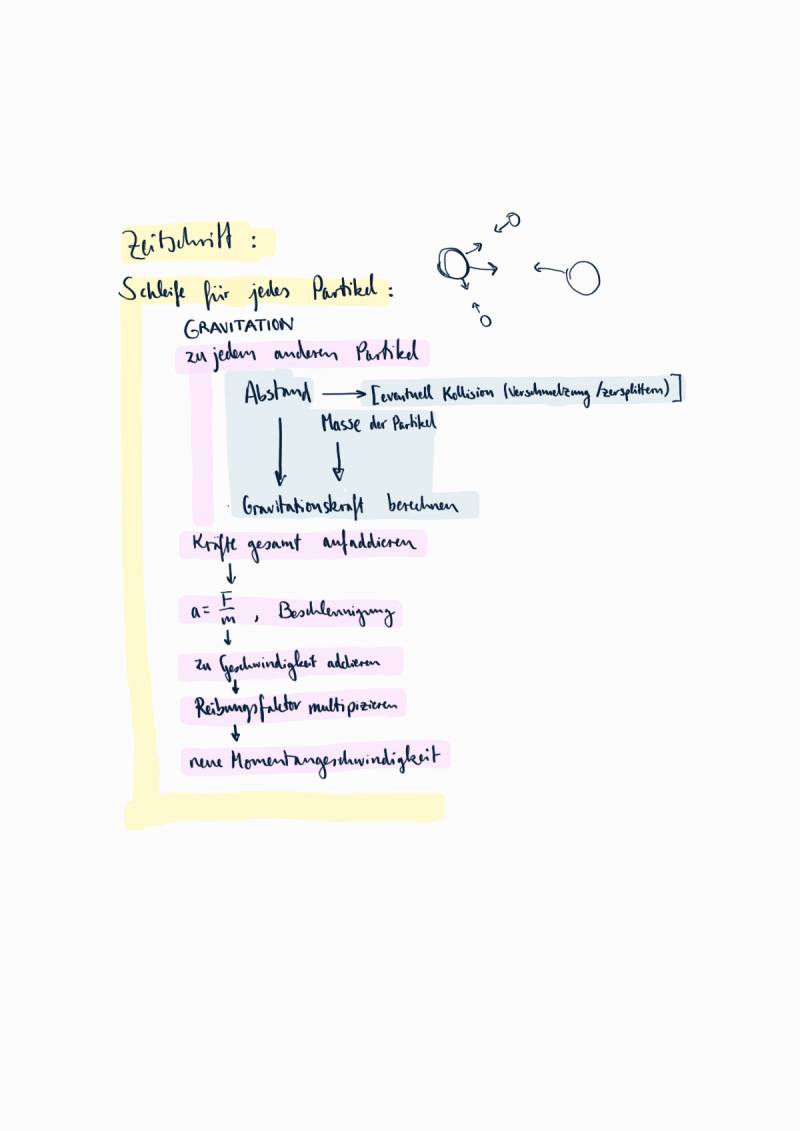 Zeitschritt :
Schleife für jedes Partikel :
GRAVITATION
zu jedem anderen Partikel
Abstand → [eventuell Kollision (Verschmelzung /zersplittern)]
Masse der Partikel
Gravitationskraft berechnen
Kräfte gesamt aufaddieren
a = F/m , Beschleunigung
zu Geschwindigkeit addieren
Reibungsfaktor multipizieren
neue Momentangeschwindigkeit